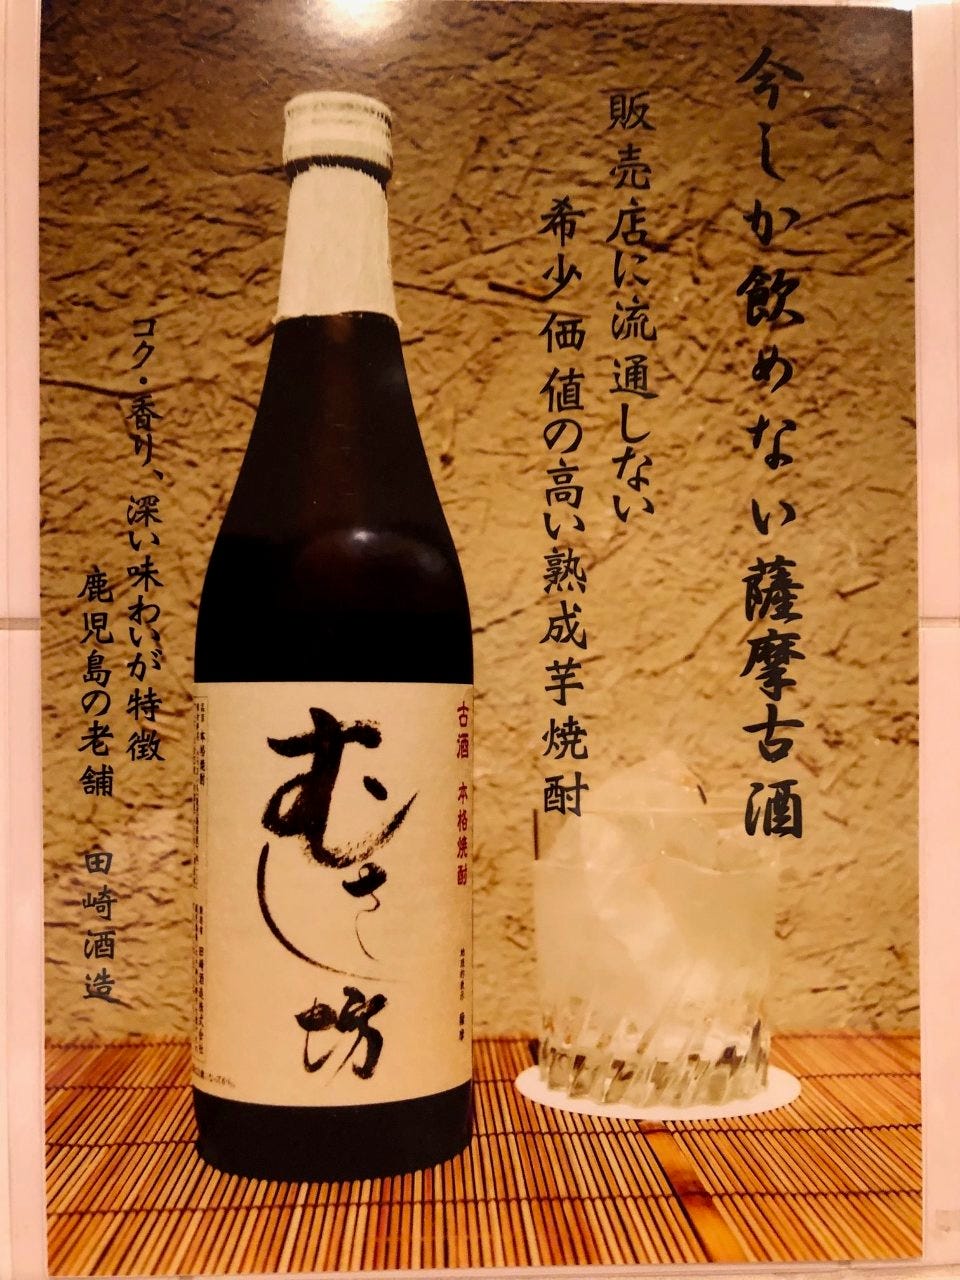 今しか飲めない薩摩古酒
販売店に流通しない
希少価値の高い熟成芋焼酎
古酒 本格焼酎
薩摩
むさし坊
本格焼酎
田崎酒造株式会社
コク・香り、深い味わいが特徴
鹿児島の老舗 田崎酒造